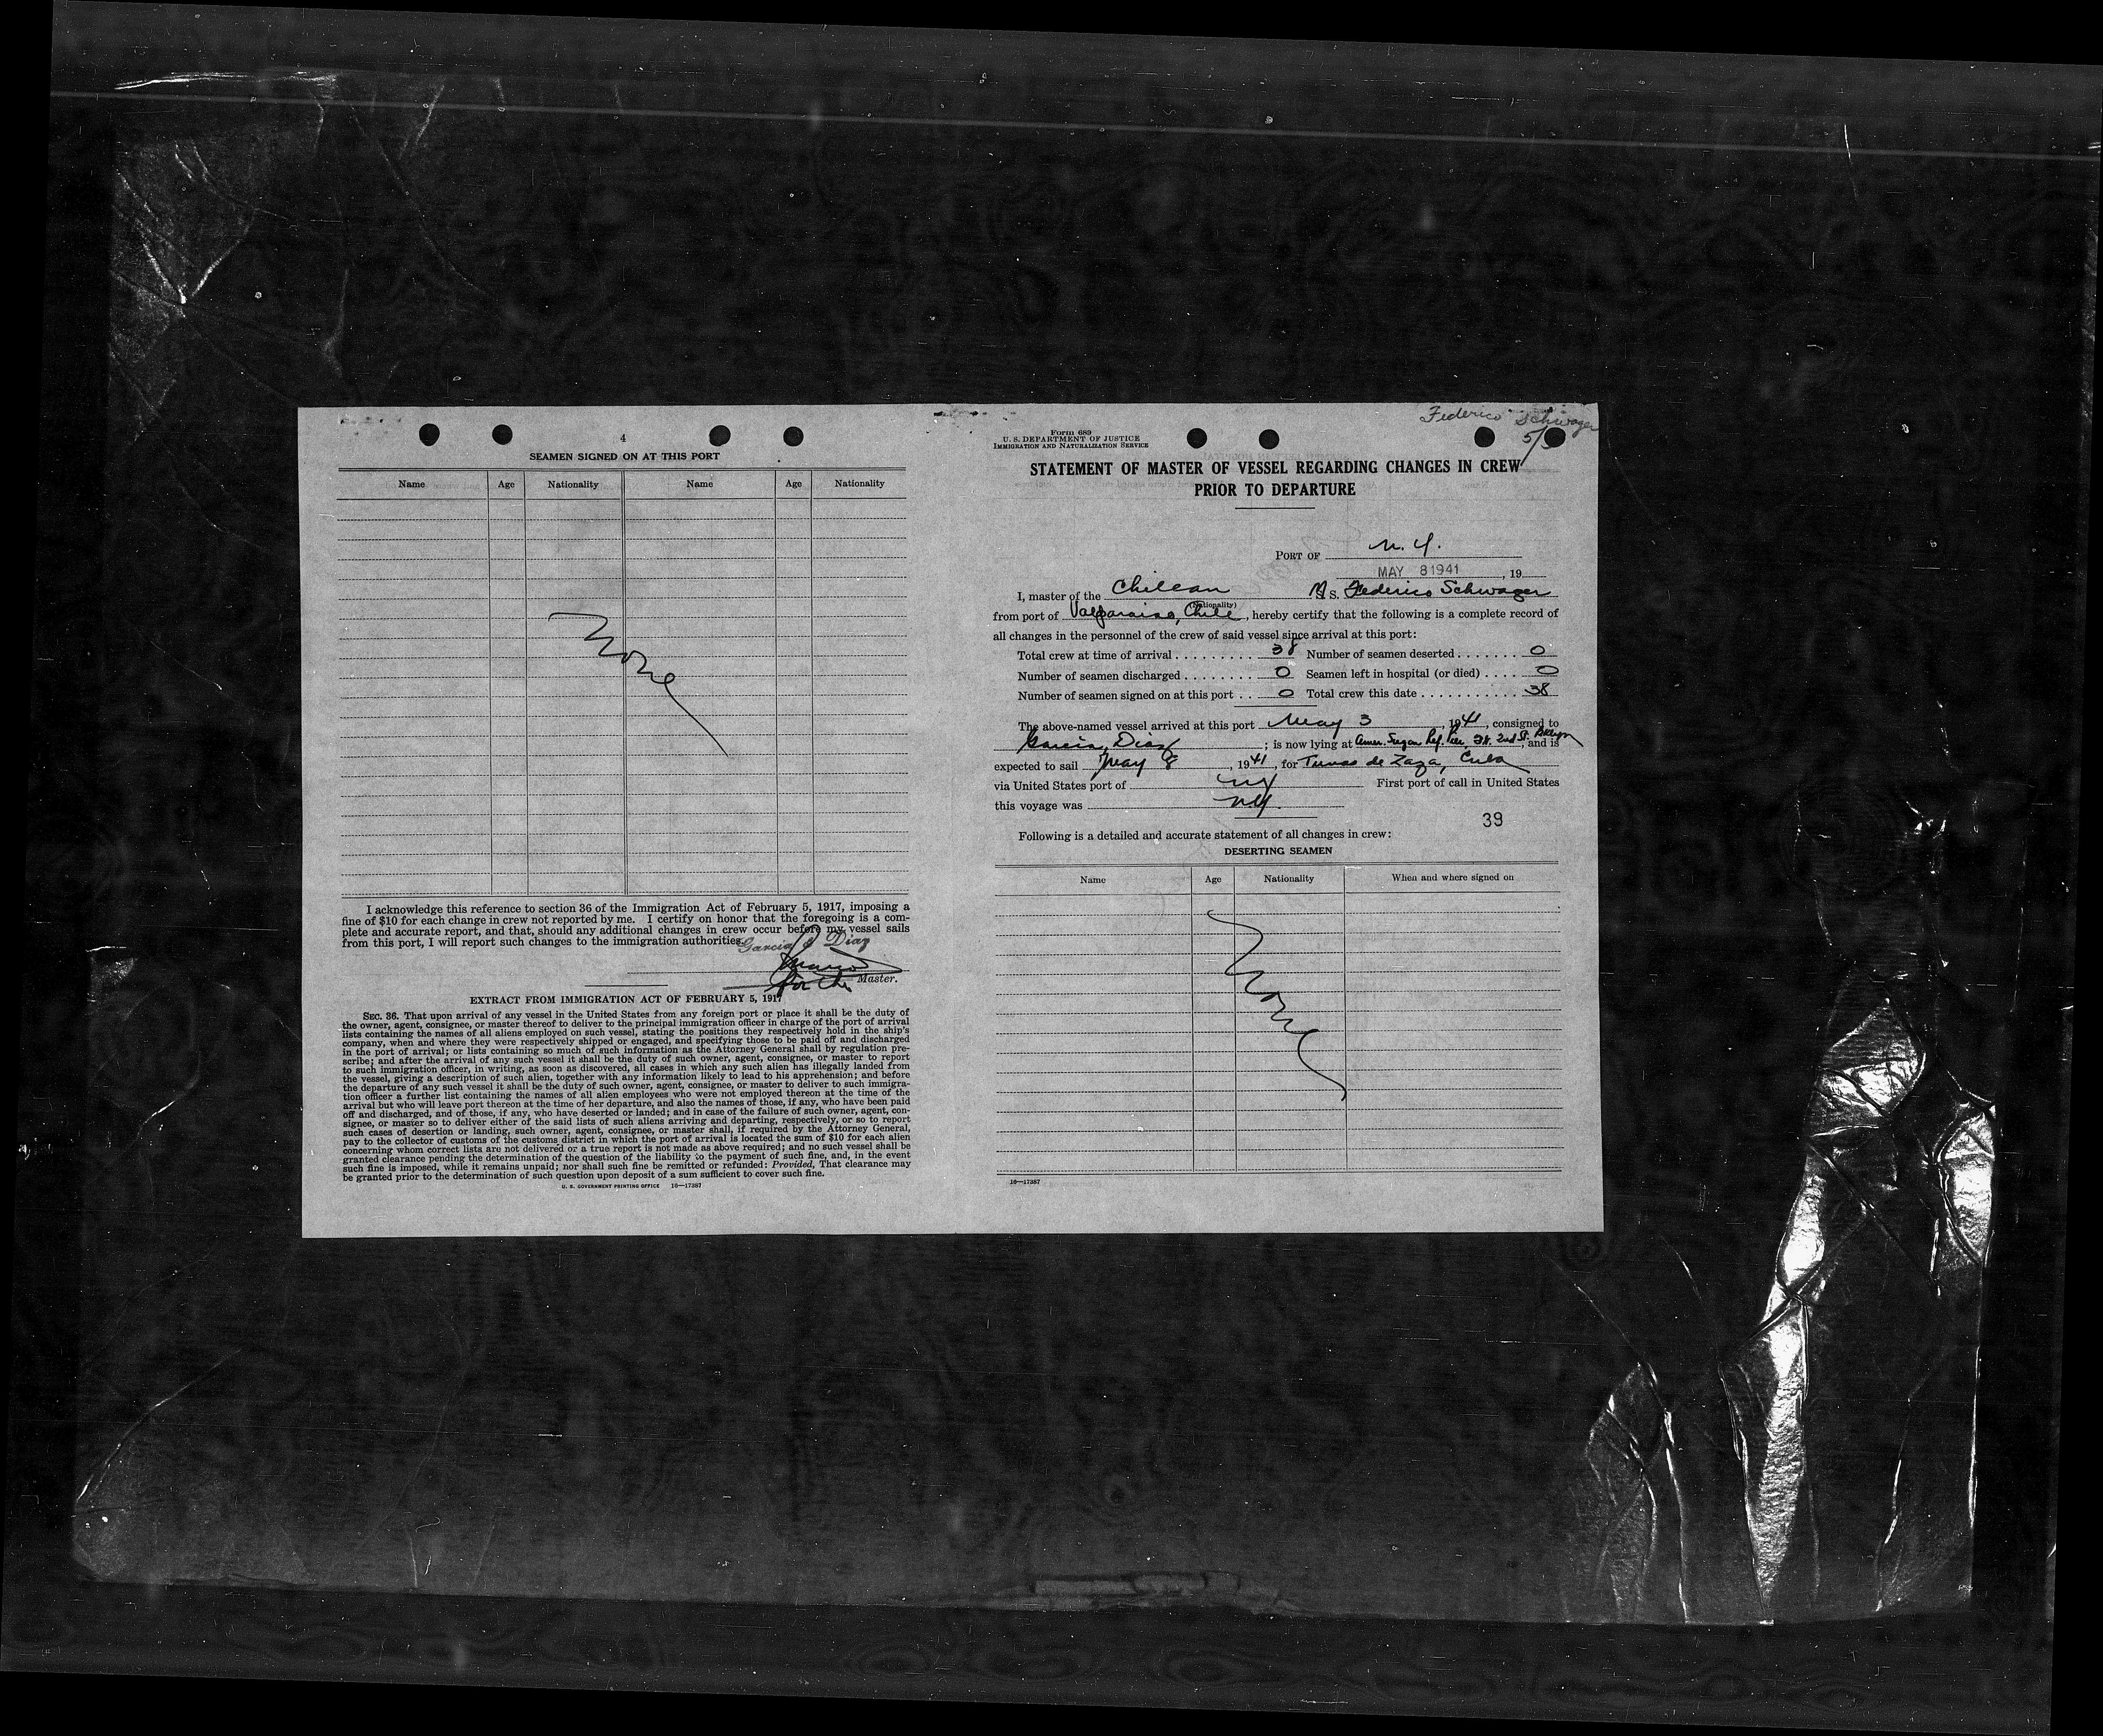 4
SEAMEN SIGNED ON AT THIS PORT
Name Age Nationality Name Age Nationality
None
I acknowledge this reference to section 36 of the Immigration Act of February 5, 1917, imposing a
fine of $10 for each change in crew not reported by me. I certify on honor that the foregoing is a com-
plete and accurate report, and that, should any additional changes in crew occur before my vessel sails
from this port, I will report such changes to the immigration authorities.
Garcia & Diaz
for the Master.
EXTRACT FROM IMMIGRATION ACT OF FEBRUARY 5, 1917
SEC. 36. That upon arrival of any vessel in the United States from any foreign port or place it shall be the duty of
the owner, agent, consignee, or master thereof to deliver to the principal immigration officer in charge of the port of arrival
lists containing the names of all aliens employed on such vessel, stating the positions they respectively hold in the ship's
company, when and where they were respectively shipped or engaged, and specifying those to be paid off and discharged
in the port of arrival; or lists containing so much of such information as the Attorney General shall by regulation pre-
scribe; and after the arrival of any such vessel it shall be the duty of such owner, agent, consignee, or master to report
to such immigration officer, in writing, as soon as discovered, all cases in which any such alien has illegally landed from
the vessel, giving a description of such alien, together with any information likely to lead to his apprehension; and before
the departure of any such vessel it shall be the duty of such owner, agent, consignee, or master to deliver to such immigra-
tion officer a further list containing the names of all alien employees who were not employed thereon at the time of the
arrival but who will leave port thereon at the time of her departure, and also the names of those, if any, who have been paid
off and discharged, and of those, if any, who have deserted or landed; and in case of the failure of such owner, agent, con-
signee, or master so to deliver either of the said lists of such aliens arriving and departing, respectively, or so to report
such cases of desertion or landing, such owner, agent, consignee, or master shall, if required by the Attorney General,
pay to the collector of customs of the customs district in which the port of arrival is located the sum of $10 for each alien
concerning whom correct lists are not delivered or a true report is not made as above required; and no such vessel shall be
granted clearance pending the determination of the question of the liability to the payment of such fine, and, in the event
such fine is imposed, while it remains unpaid; nor shall such fine be remitted or refunded: Provided, That clearance may
be granted prior to the determination of such question upon deposit of a sum sufficient to cover such fine.
U. S. GOVERNMENT PRINTING OFFICE 16—17387
Federico Schwager
5/3
Form 689
U. S. DEPARTMENT OF JUSTICE
IMMIGRATION AND NATURALIZATION SERVICE
STATEMENT OF MASTER OF VESSEL REGARDING CHANGES IN CREW
PRIOR TO DEPARTURE
PORT OF N. Y.
MAY 8 1941, 19
I, master of the Chilean M S. Federico Schwager
(Nationality)
from port of Valparaiso, Chile, hereby certify that the following is a complete record of
all changes in the personnel of the crew of said vessel since arrival at this port:
Total crew at time of arrival 38 Number of seamen deserted 0
Number of seamen discharged 0 Seamen left in hospital (or died) 0
Number of seamen signed on at this port 0 Total crew this date 38
The above-named vessel arrived at this port May 3, 1941, consigned to
Garcia, Diaz; is now lying at Amer. Sugar Ref. Pier, 2nd St. Bklyn, and is
expected to sail May 8, 1941, for Tunas de Zaza, Cuba
via United States port of NY First port of call in United States
this voyage was N.Y.
39
Following is a detailed and accurate statement of all changes in crew:
DESERTING SEAMEN
Name Age Nationality When and where signed on
None
16—17387